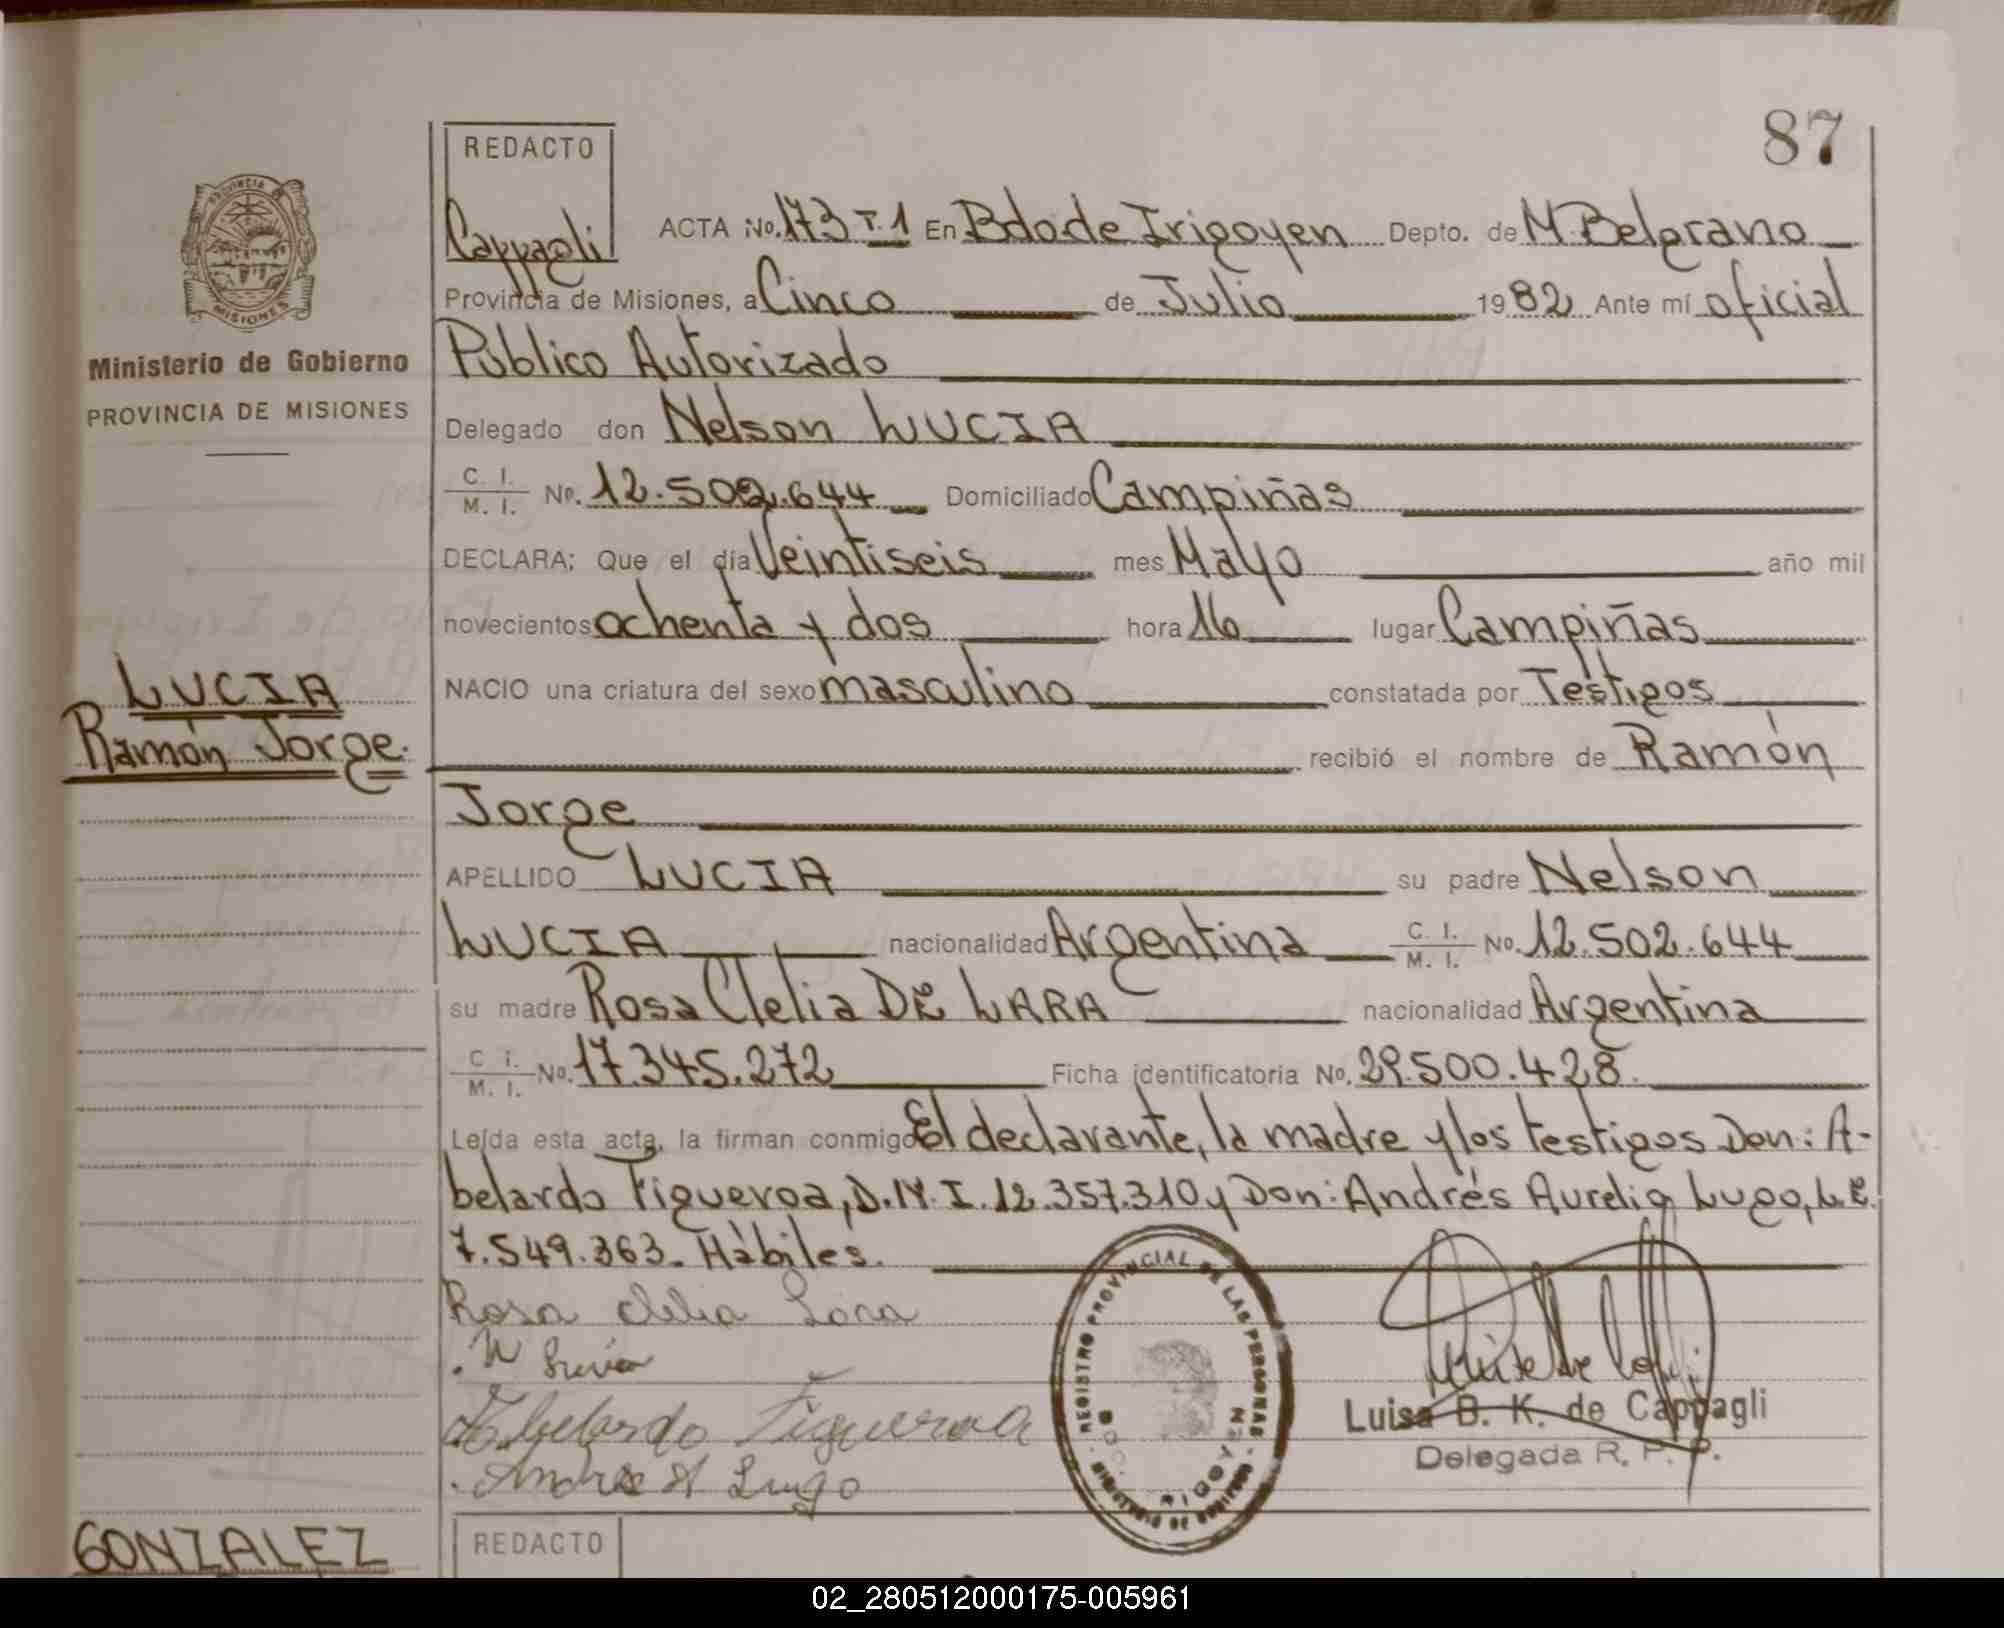 87
REDACTO
Cappagli
ACTA No. 173 T.1 En Bdo de Irigoyen Depto. de M. Belgrano
Provincia de Misiones, a Cinco de Julio 1982 Ante mí oficial
Público Autorizado
Delegado don Nelson LUCIA
C. I. / M. I. No. 12.502.644 Domiciliado Campiñas
DECLARA; Que el día Veintiseis mes Mayo año mil
novecientos ochenta y dos hora 16 lugar Campiñas
NACIO una criatura del sexo masculino constatada por Testigos
recibió el nombre de Ramón
Jorge
APELLIDO LUCIA su padre Nelson
LUCIA nacionalidad Argentina C. I. / M. I. No. 12.502.644
su madre Rosa Clelia DE LARA nacionalidad Argentina
C. I. / M. I. No. 17.345.272 Ficha identificatoria No. 29.500.428.
Leída esta acta, la firman conmigo El declarante, la madre y los testigos Don: A-
belardo Figueroa, D.N.I. 12.357.310 y Don: Andrés Aurelio Lugo, L.E.
7.549.363. Hábiles.
Rosa Clelia Lara
Abelardo Figueroa
Andres A Lugo
REGISTRO PROVINCIAL DE LAS PERSONAS
BDO. IRIGOYEN
Luisa B. K. de Cappagli
Delegada R. P. P.
PROVINCIA DE
MISIONES
Ministerio de Gobierno
PROVINCIA DE MISIONES
LUCIA
Ramón Jorge.
GONZALEZ
REDACTO
02_280512000175-005961